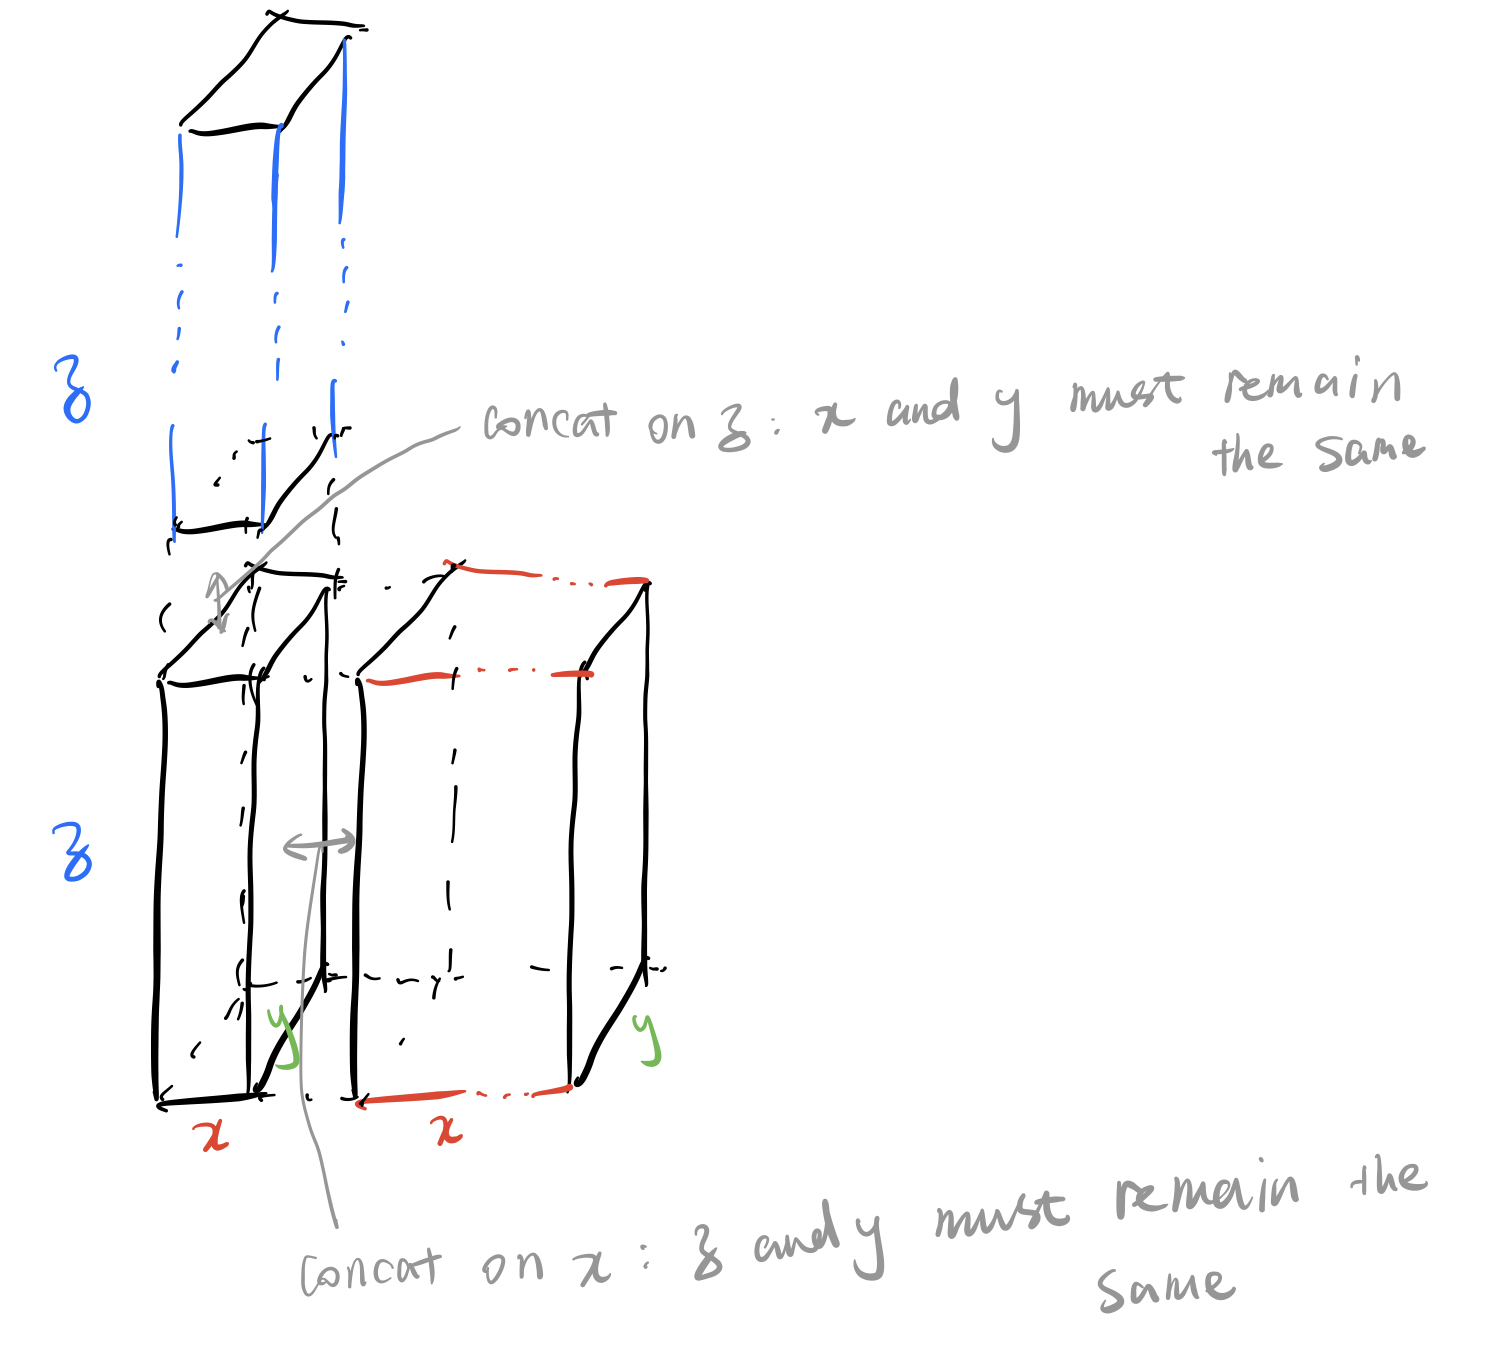 z
concat on z : x and y must remain
the same
z
y
y
x
x
concat on x : z and y must remain the
same